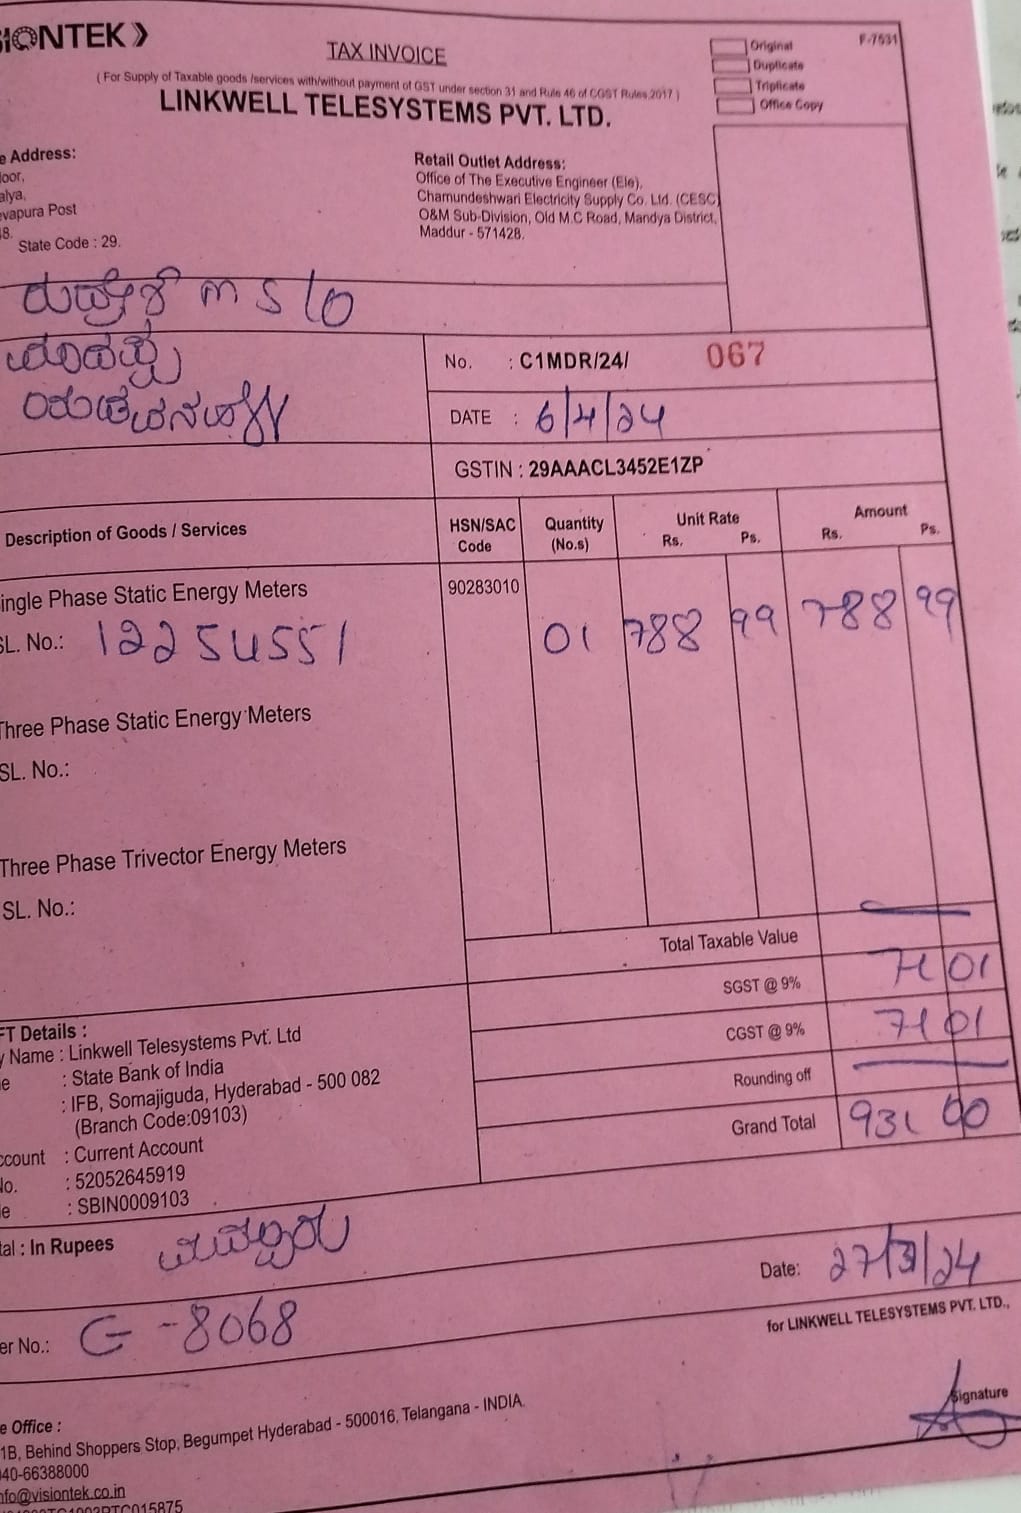 IONTEK
TAX INVOICE
Original
Duplicate
Triplicate
Office Copy
F-7531
( For Supply of Taxable goods /services with/without payment of GST under section 31 and Rule 46 of CGST Rules,2017 )
LINKWELL TELESYSTEMS PVT. LTD.
e Address:
oor,
alya,
vapura Post
8.
State Code : 29.
Retail Outlet Address:
Office of The Executive Engineer (Ele),
Chamundeshwari Electricity Supply Co. Ltd. (CESC)
O&M Sub-Division, Old M.C Road, Mandya District,
Maddur - 571428.
No. : C1MDR/24/ 067
DATE : 6/4/24
GSTIN : 29AAACL3452E1ZP
Description of Goods / Services HSN/SAC Code Quantity (No.s) Unit Rate Rs. Ps. Amount Rs. Ps.
ingle Phase Static Energy Meters 90283010
SL. No.: 12254551 01 788 99 788 99
Three Phase Static Energy Meters
SL. No.:
Three Phase Trivector Energy Meters
SL. No.:
Total Taxable Value
SGST @ 9% 71 01
CGST @ 9% 71 01
Rounding off
Grand Total 931 00
FT Details :
y Name : Linkwell Telesystems Pvt. Ltd
e : State Bank of India
: IFB, Somajiguda, Hyderabad - 500 082
(Branch Code:09103)
ccount : Current Account
No. : 52052645919
e : SBIN0009103
tal : In Rupees
Date: 27/3/24
er No.: G-8068
for LINKWELL TELESYSTEMS PVT. LTD.,
Signature
e Office :
1B, Behind Shoppers Stop, Begumpet Hyderabad - 500016, Telangana - INDIA.
040-66388000
nfo@visiontek.co.in